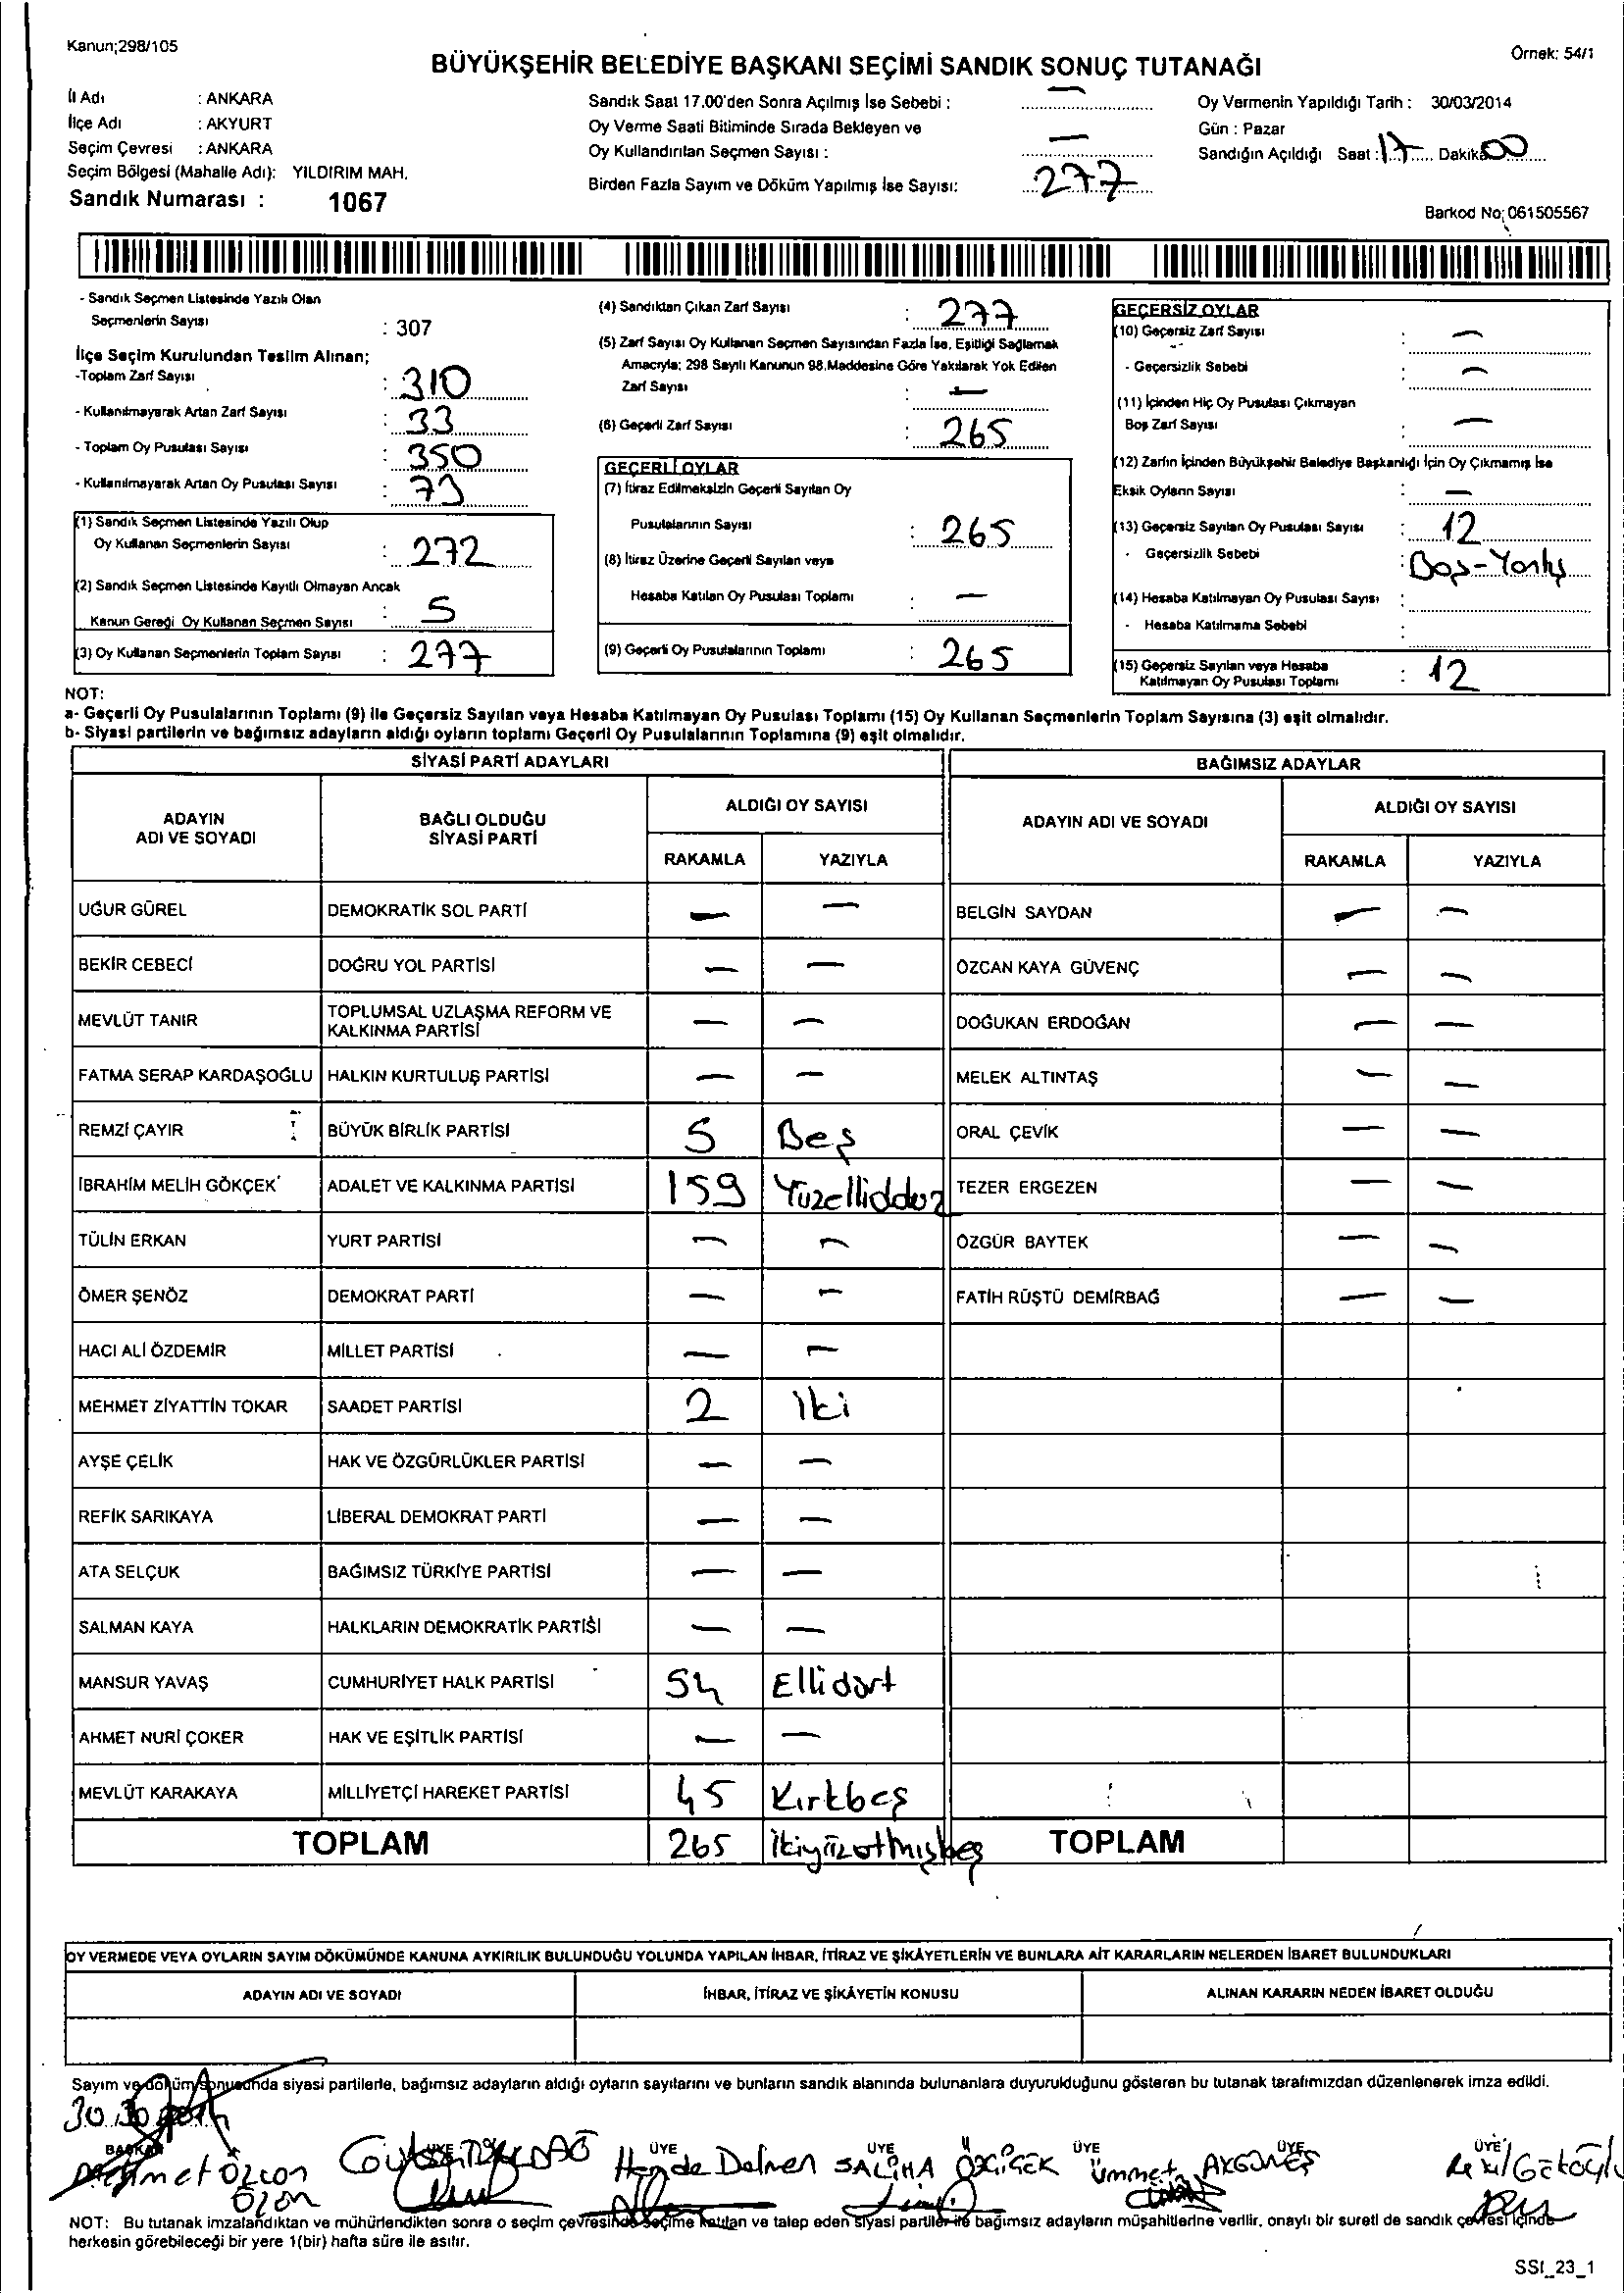 Kanun;298/105
BÜYÜKŞEHİR BELEDİYE BAŞKANI SEÇİMİ SANDIK SONUÇ TUTANAĞI
Örnek: 54/1
İl Adı : ANKARA
İlçe Adı : AKYURT
Seçim Çevresi : ANKARA
Seçim Bölgesi (Mahalle Adı): YILDIRIM MAH.
Sandık Numarası : 1067
Sandık Saat 17.00'den Sonra Açılmış İse Sebebi : —
Oy Verme Saati Bitiminde Sırada Bekleyen ve
Oy Kullandırılan Seçmen Sayısı : —
Birden Fazla Sayım ve Döküm Yapılmış İse Sayısı: 277
Oy Vermenin Yapıldığı Tarih : 30/03/2014
Gün : Pazar
Sandığın Açıldığı Saat : 17 Dakika 00
Barkod No; 061505567
- Sandık Seçmen Listesinde Yazılı Olan
Seçmenlerin Sayısı : 307
İlçe Seçim Kurulundan Teslim Alınan;
-Toplam Zarf Sayısı : 310
- Kullanılmayarak Artan Zarf Sayısı : 33
- Toplam Oy Pusulası Sayısı : 350
- Kullanılmayarak Artan Oy Pusulası Sayısı : 73
(1) Sandık Seçmen Listesinde Yazılı Olup
Oy Kullanan Seçmenlerin Sayısı : 272
(2) Sandık Seçmen Listesinde Kayıtlı Olmayan Ancak
Kanun Gereği Oy Kullanan Seçmen Sayısı : 5
(3) Oy Kullanan Seçmenlerin Toplam Sayısı : 277
(4) Sandıktan Çıkan Zarf Sayısı : 277
(5) Zarf Sayısı Oy Kullanan Seçmen Sayısından Fazla İse, Eşitliği Sağlamak
Amacıyla; 298 Sayılı Kanunun 98.Maddesine Göre Yakılarak Yok Edilen
Zarf Sayısı : —
(6) Geçerli Zarf Sayısı : 265
GEÇERLİ OYLAR
(7) İtiraz Edilmeksizin Geçerli Sayılan Oy
Pusulalarının Sayısı : 265
(8) İtiraz Üzerine Geçerli Sayılan veya
Hesaba Katılan Oy Pusulası Toplamı : —
(9) Geçerli Oy Pusulalarının Toplamı : 265
GEÇERSİZ OYLAR
(10) Geçersiz Zarf Sayısı : —
- Geçersizlik Sebebi : —
(11) İçinden Hiç Oy Pusulası Çıkmayan
Boş Zarf Sayısı : —
(12) Zarfın İçinden Büyükşehir Belediye Başkanlığı İçin Oy Çıkmamış İse
Eksik Oyların Sayısı : —
(13) Geçersiz Sayılan Oy Pusulası Sayısı : 12
- Geçersizlik Sebebi : Boş-Yanlış
(14) Hesaba Katılmayan Oy Pusulası Sayısı :
- Hesaba Katılmama Sebebi :
(15) Geçersiz Sayılan veya Hesaba
Katılmayan Oy Pusulası Toplamı : 12
NOT:
a- Geçerli Oy Pusulalarının Toplamı (9) ile Geçersiz Sayılan veya Hesaba Katılmayan Oy Pusulası Toplamı (15) Oy Kullanan Seçmenlerin Toplam Sayısına (3) eşit olmalıdır.
b- Siyasi partilerin ve bağımsız adayların aldığı oyların toplamı Geçerli Oy Pusulalarının Toplamına (9) eşit olmalıdır.
SİYASİ PARTİ ADAYLARI BAĞIMSIZ ADAYLAR
ADAYIN ADI VE SOYADI BAĞLI OLDUĞU SİYASİ PARTİ ALDIĞI OY SAYISI ADAYIN ADI VE SOYADI ALDIĞI OY SAYISI
RAKAMLA YAZIYLA RAKAMLA YAZIYLA
UĞUR GÜREL DEMOKRATİK SOL PARTİ — — BELGİN SAYDAN — —
BEKİR CEBECİ DOĞRU YOL PARTİSİ — — ÖZCAN KAYA GÜVENÇ — —
MEVLÜT TANIR TOPLUMSAL UZLAŞMA REFORM VE KALKINMA PARTİSİ — — DOĞUKAN ERDOĞAN — —
FATMA SERAP KARDAŞOĞLU HALKIN KURTULUŞ PARTİSİ — — MELEK ALTINTAŞ — —
REMZİ ÇAYIR BÜYÜK BİRLİK PARTİSİ 5 Beş ORAL ÇEVİK — —
İBRAHİM MELİH GÖKÇEK ADALET VE KALKINMA PARTİSİ 159 Yüzelliddoz TEZER ERGEZEN — —
TÜLİN ERKAN YURT PARTİSİ — — ÖZGÜR BAYTEK — —
ÖMER ŞENÖZ DEMOKRAT PARTİ — — FATİH RÜŞTÜ DEMİRBAĞ — —
HACI ALİ ÖZDEMİR MİLLET PARTİSİ — —
MEHMET ZİYATTİN TOKAR SAADET PARTİSİ 2 İki
AYŞE ÇELİK HAK VE ÖZGÜRLÜKLER PARTİSİ — —
REFİK SARIKAYA LİBERAL DEMOKRAT PARTİ — —
ATA SELÇUK BAĞIMSIZ TÜRKİYE PARTİSİ — —
SALMAN KAYA HALKLARIN DEMOKRATİK PARTİSİ — —
MANSUR YAVAŞ CUMHURİYET HALK PARTİSİ 54 Ellidört
AHMET NURİ ÇOKER HAK VE EŞİTLİK PARTİSİ — —
MEVLÜT KARAKAYA MİLLİYETÇİ HAREKET PARTİSİ 45 Kırkbeş
TOPLAM 265 ikiyüzatmışbeş TOPLAM
OY VERMEDE VEYA OYLARIN SAYIM DÖKÜMÜNDE KANUNA AYKIRILIK BULUNDUĞU YOLUNDA YAPILAN İHBAR, İTİRAZ VE ŞİKÂYETLERİN VE BUNLARA AİT KARARLARIN NELERDEN İBARET BULUNDUKLARI
ADAYIN ADI VE SOYADI İHBAR, İTİRAZ VE ŞİKÂYETİN KONUSU ALINAN KARARIN NEDEN İBARET OLDUĞU
Sayım ve döküm sonucunda siyasi partilerle, bağımsız adayların aldığı oyların sayılarını ve bunların sandık alanında bulunanlara duyurulduğunu gösteren bu tutanak tarafımızdan düzenlenerek imza edildi.
BAŞKAN ÜYE ÜYE ÜYE ÜYE ÜYE ÜYE
Özcan Hande SALİHA ÖZÇİÇEK Ümmet AKGÜNEŞ
NOT: Bu tutanak imzalandıktan ve mühürlendikten sonra o seçim çevresinde seçime katılan ve talep eden siyasi partiler ile bağımsız adayların müşahitlerine verilir, onaylı bir sureti de sandık çevresi içinde
herkesin görebileceği bir yere 1(bir) hafta süre ile asılır.
SSI_23_1